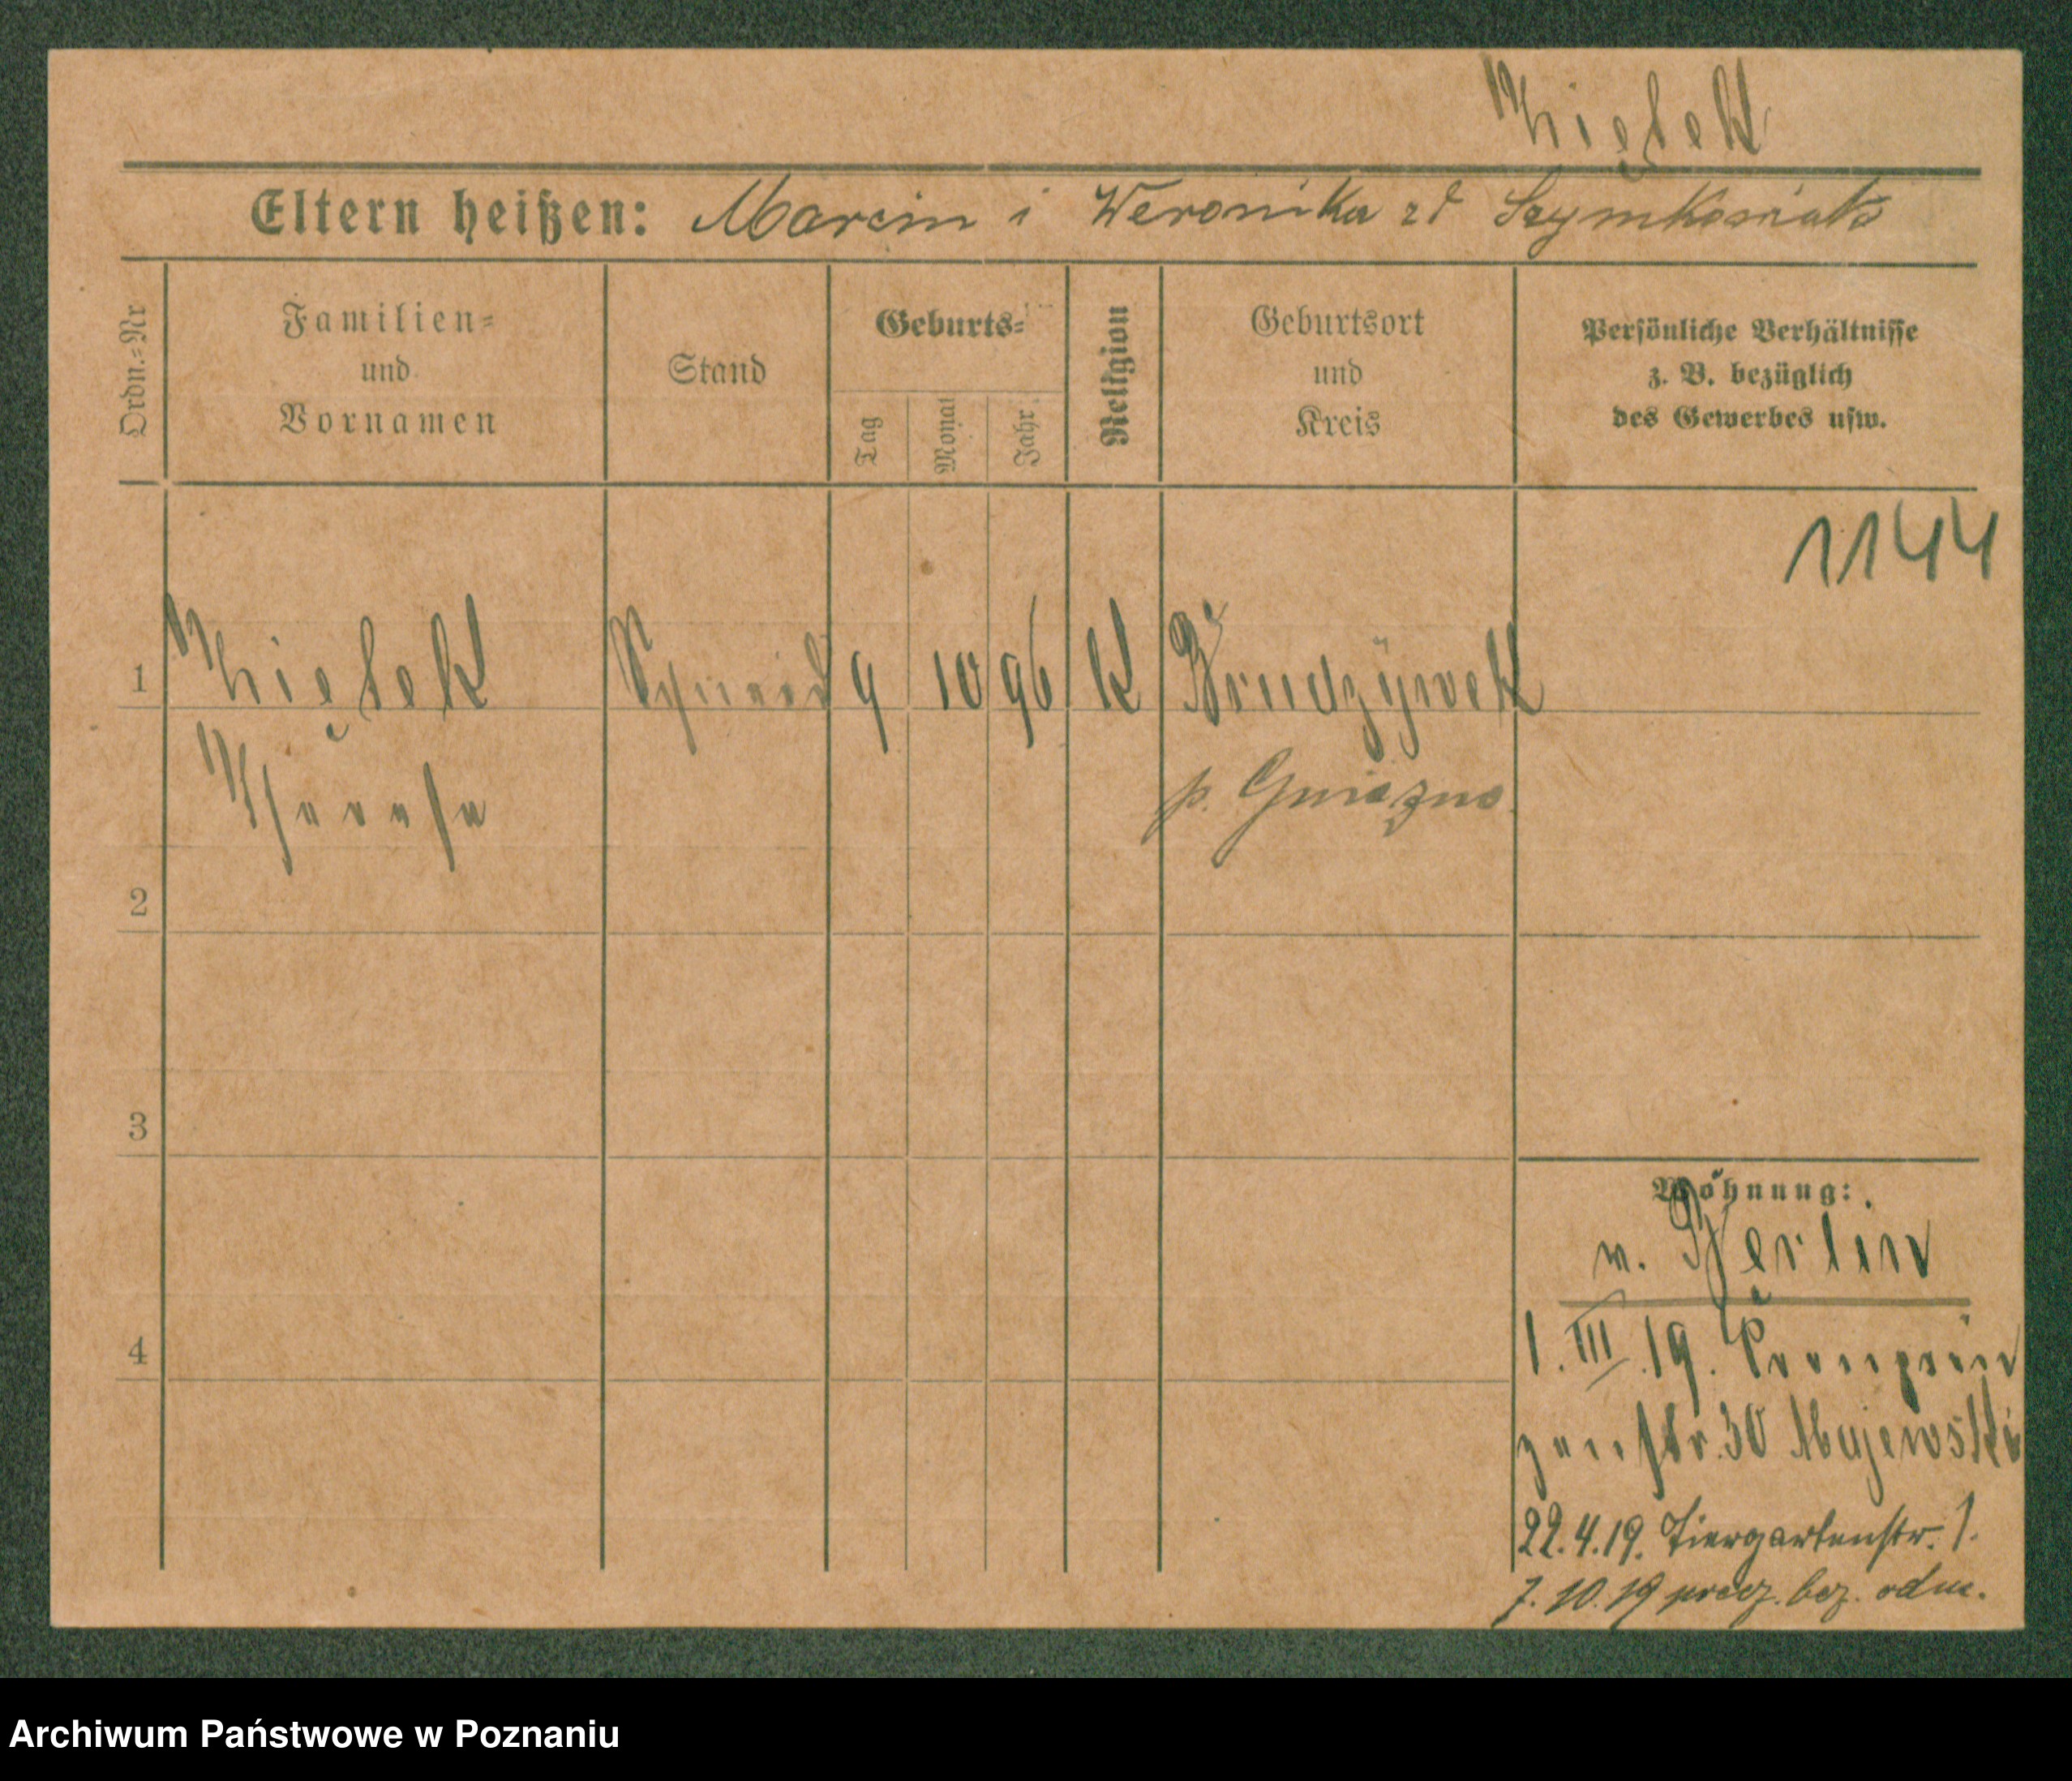 Eltern heißen: Marcin i Weronika zd Szymkowiak
Ordn.=Nr
Familien=
und
Vornamen
Stand
Geburts=
Tag
Monat
Jahr
Religion
Geburtsort
und
Kreis
Persönliche Verhältnisse
z. B. bezüglich
des Gewerbes usw.
1144
1 9 10 96 K Brudzywek
p. Gniezno
2
3
4
Wohnung:
v. Berlin
1. III. 19. Kronprin
zenstr. 30 Majewski
22.4.19. Tiergartenstr. 1.
7. 10. 19 bez. odm.
Archiwum Państwowe w Poznaniu